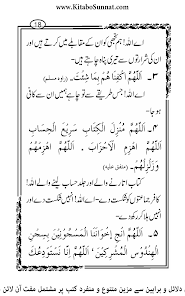 www.KitaboSunnat.com
18
اے اللہ! ہم تجھی کو ان کے مقابلے میں کرتے ہیں اور
ان کی شرارتوں سے تیری پناہ چاہتے ہیں۔
۳۔ اَللّٰهُمَّ اكْفِنَا هُمْ بِمَا شِئْتَ۔ (رواہ مسلم)
اے اللہ! جس طریقے سے تو چاہے ہمیں ان سے کافی
ہو جا۔
۴۔ اَللّٰهُمَّ مُنْزِلَ الْكِتَابِ سَرِيْعَ الْحِسَابِ
اَللّٰهُمَّ اهْزِمِ الْاَحْزَابَ۔ اَللّٰهُمَّ اهْزِمْهُمْ
وَزَلْزِلْهُمْ۔ (متفق علیہ)
کتاب اتارنے والے اور جلد حساب لینے والے اللہ!
کافر جماعتوں کو شکست دے۔ اے اللہ! انہیں شکست دے اور
انہیں ہلا کر رکھ دے۔
۵۔ اَللّٰهُمَّ اَنْجِ اِخْوَانَنَا الْمَسْجُوْنِيْنَ بِسِجْنِ
الْهُنْدُوْسِ الْمُشْرِكِيْنَ۔ اَللّٰهُمَّ اِنَّا نَسْتَوْدِعُكَ
دلائل و براہین سے مزین متنوع و منفرد کتب پر مشتمل مفت آن لائن